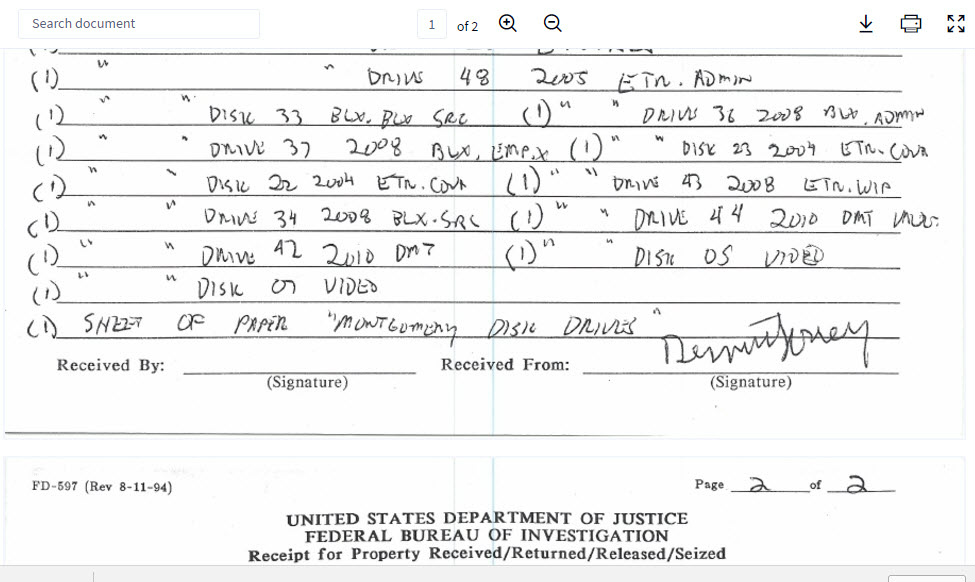 Search document 1 of 2
(1) " " DRIVE 48 2005 ETN. ADMIN
(1) " " DISK 33 BLX. BLX SRC (1) " " DRIVE 36 2008 BLX. ADMIN
(1) " " DRIVE 37 2008 BLX, EMP.X (1) " " DISK 23 2004 ETN. COVR
(1) " " DISK 22 2004 ETN. COVR (1) " " DRIVE 43 2008 ETN. WIP
(1) " " DRIVE 34 2008 BLX. SRC (1) " " DRIVE 44 2010 DMT
(1) " " DRIVE 42 2010 DMT (1) " " DISK 05 VIDEO
(1) " " DISK 07 VIDEO
(1) SHEET OF PAPER "MONTGOMERY DISK DRIVES"
Received By: Received From:
(Signature) (Signature)
FD-597 (Rev 8-11-94) Page 2 of 2
UNITED STATES DEPARTMENT OF JUSTICE
FEDERAL BUREAU OF INVESTIGATION
Receipt for Property Received/Returned/Released/Seized